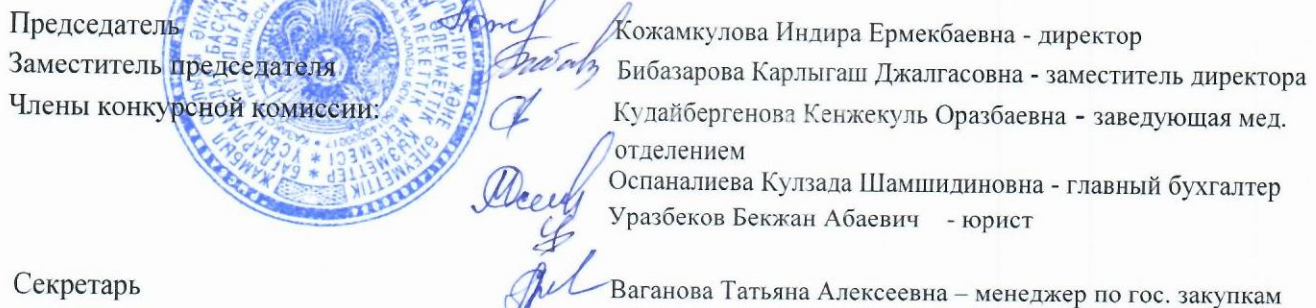 Председатель Кожамкулова Индира Ермекбаевна - директор
Заместитель председателя Бибазарова Карлыгаш Джалгасовна - заместитель директора
Члены конкурсной комиссии: Кудайбергенова Кенжекуль Оразбаевна - заведующая мед.
отделением
Оспаналиева Кулзада Шамшидиновна - главный бухгалтер
Уразбеков Бекжан Абаевич - юрист
Секретарь Ваганова Татьяна Алексеевна – менеджер по гос. закупкам